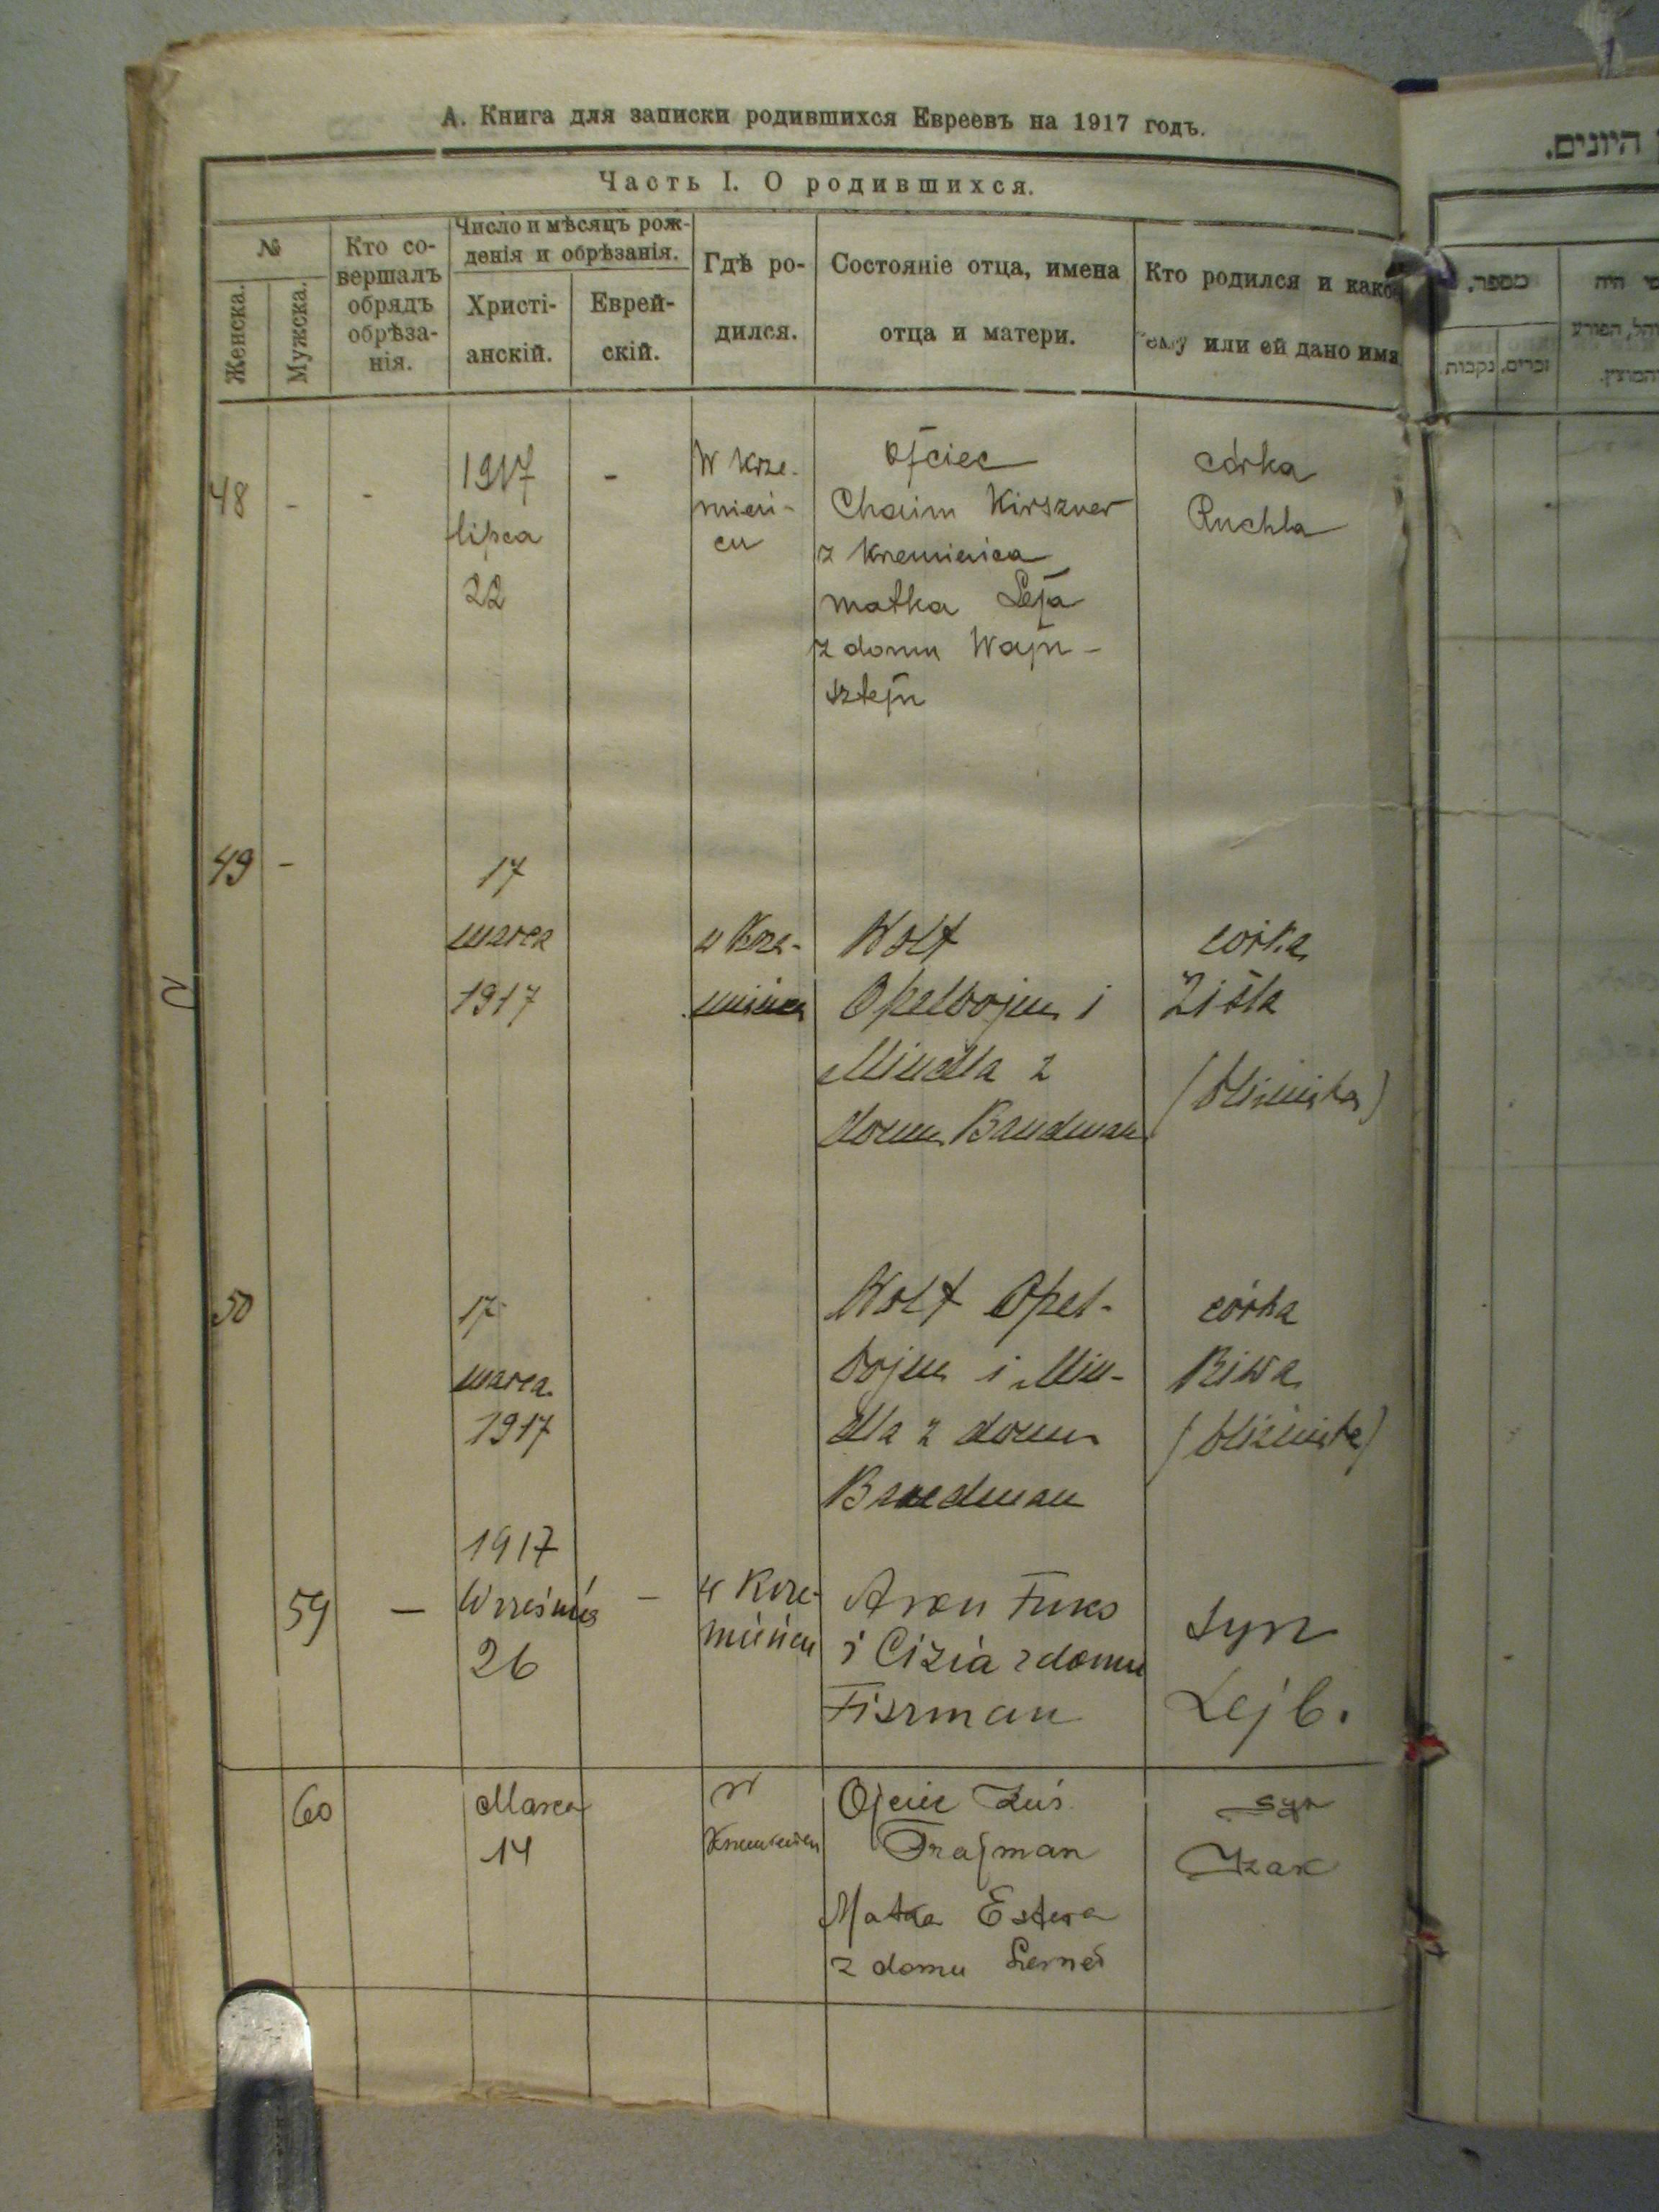 А. Книга для записки родившихся Евреевъ на 1917 годъ.
Часть I. О родившихся.
№
Женска.
Мужска.
Кто со-
вершалъ
обрядъ
обрѣза-
нія.
Число и мѣсяцъ рож-
денія и обрѣзанія.
Христі-
анскій.
Еврей-
скій.
Гдѣ ро-
дился.
Состояніе отца, имена
отца и матери.
Кто родился и какое
ему или ей дано имя
48 - -
1917
lipca
22
-
W Krze-
mień-
cu
Ojciec
Chaim Kirszner
z Kremieńca
matka Leja
z domu Wajn-
sztejn
córka
Ruchla
49 -
17
marca
1917
w Krze-
mieńcu
Wolf
Opelbojm i
Mindla z
domu Bandman
córka
Zisla
(bliźniaka)
50
17
marca
1917
Wolf Opel-
bojm i Min-
dla z domu
Bandman
córka
Riwa
(bliźniaka)
59 -
1917
Września
26
-
w Krze-
mieńcu
Aron Fuks
i Cizia z domu
Fiszman
syn
Lejb.
60
Marca
14
w
Krzemieńcu
Ojciec Zuś
Frajman
Matka Estera
z domu Lerner
syn
Izak
היונים.
מספר.
זכרים.
נקבות.